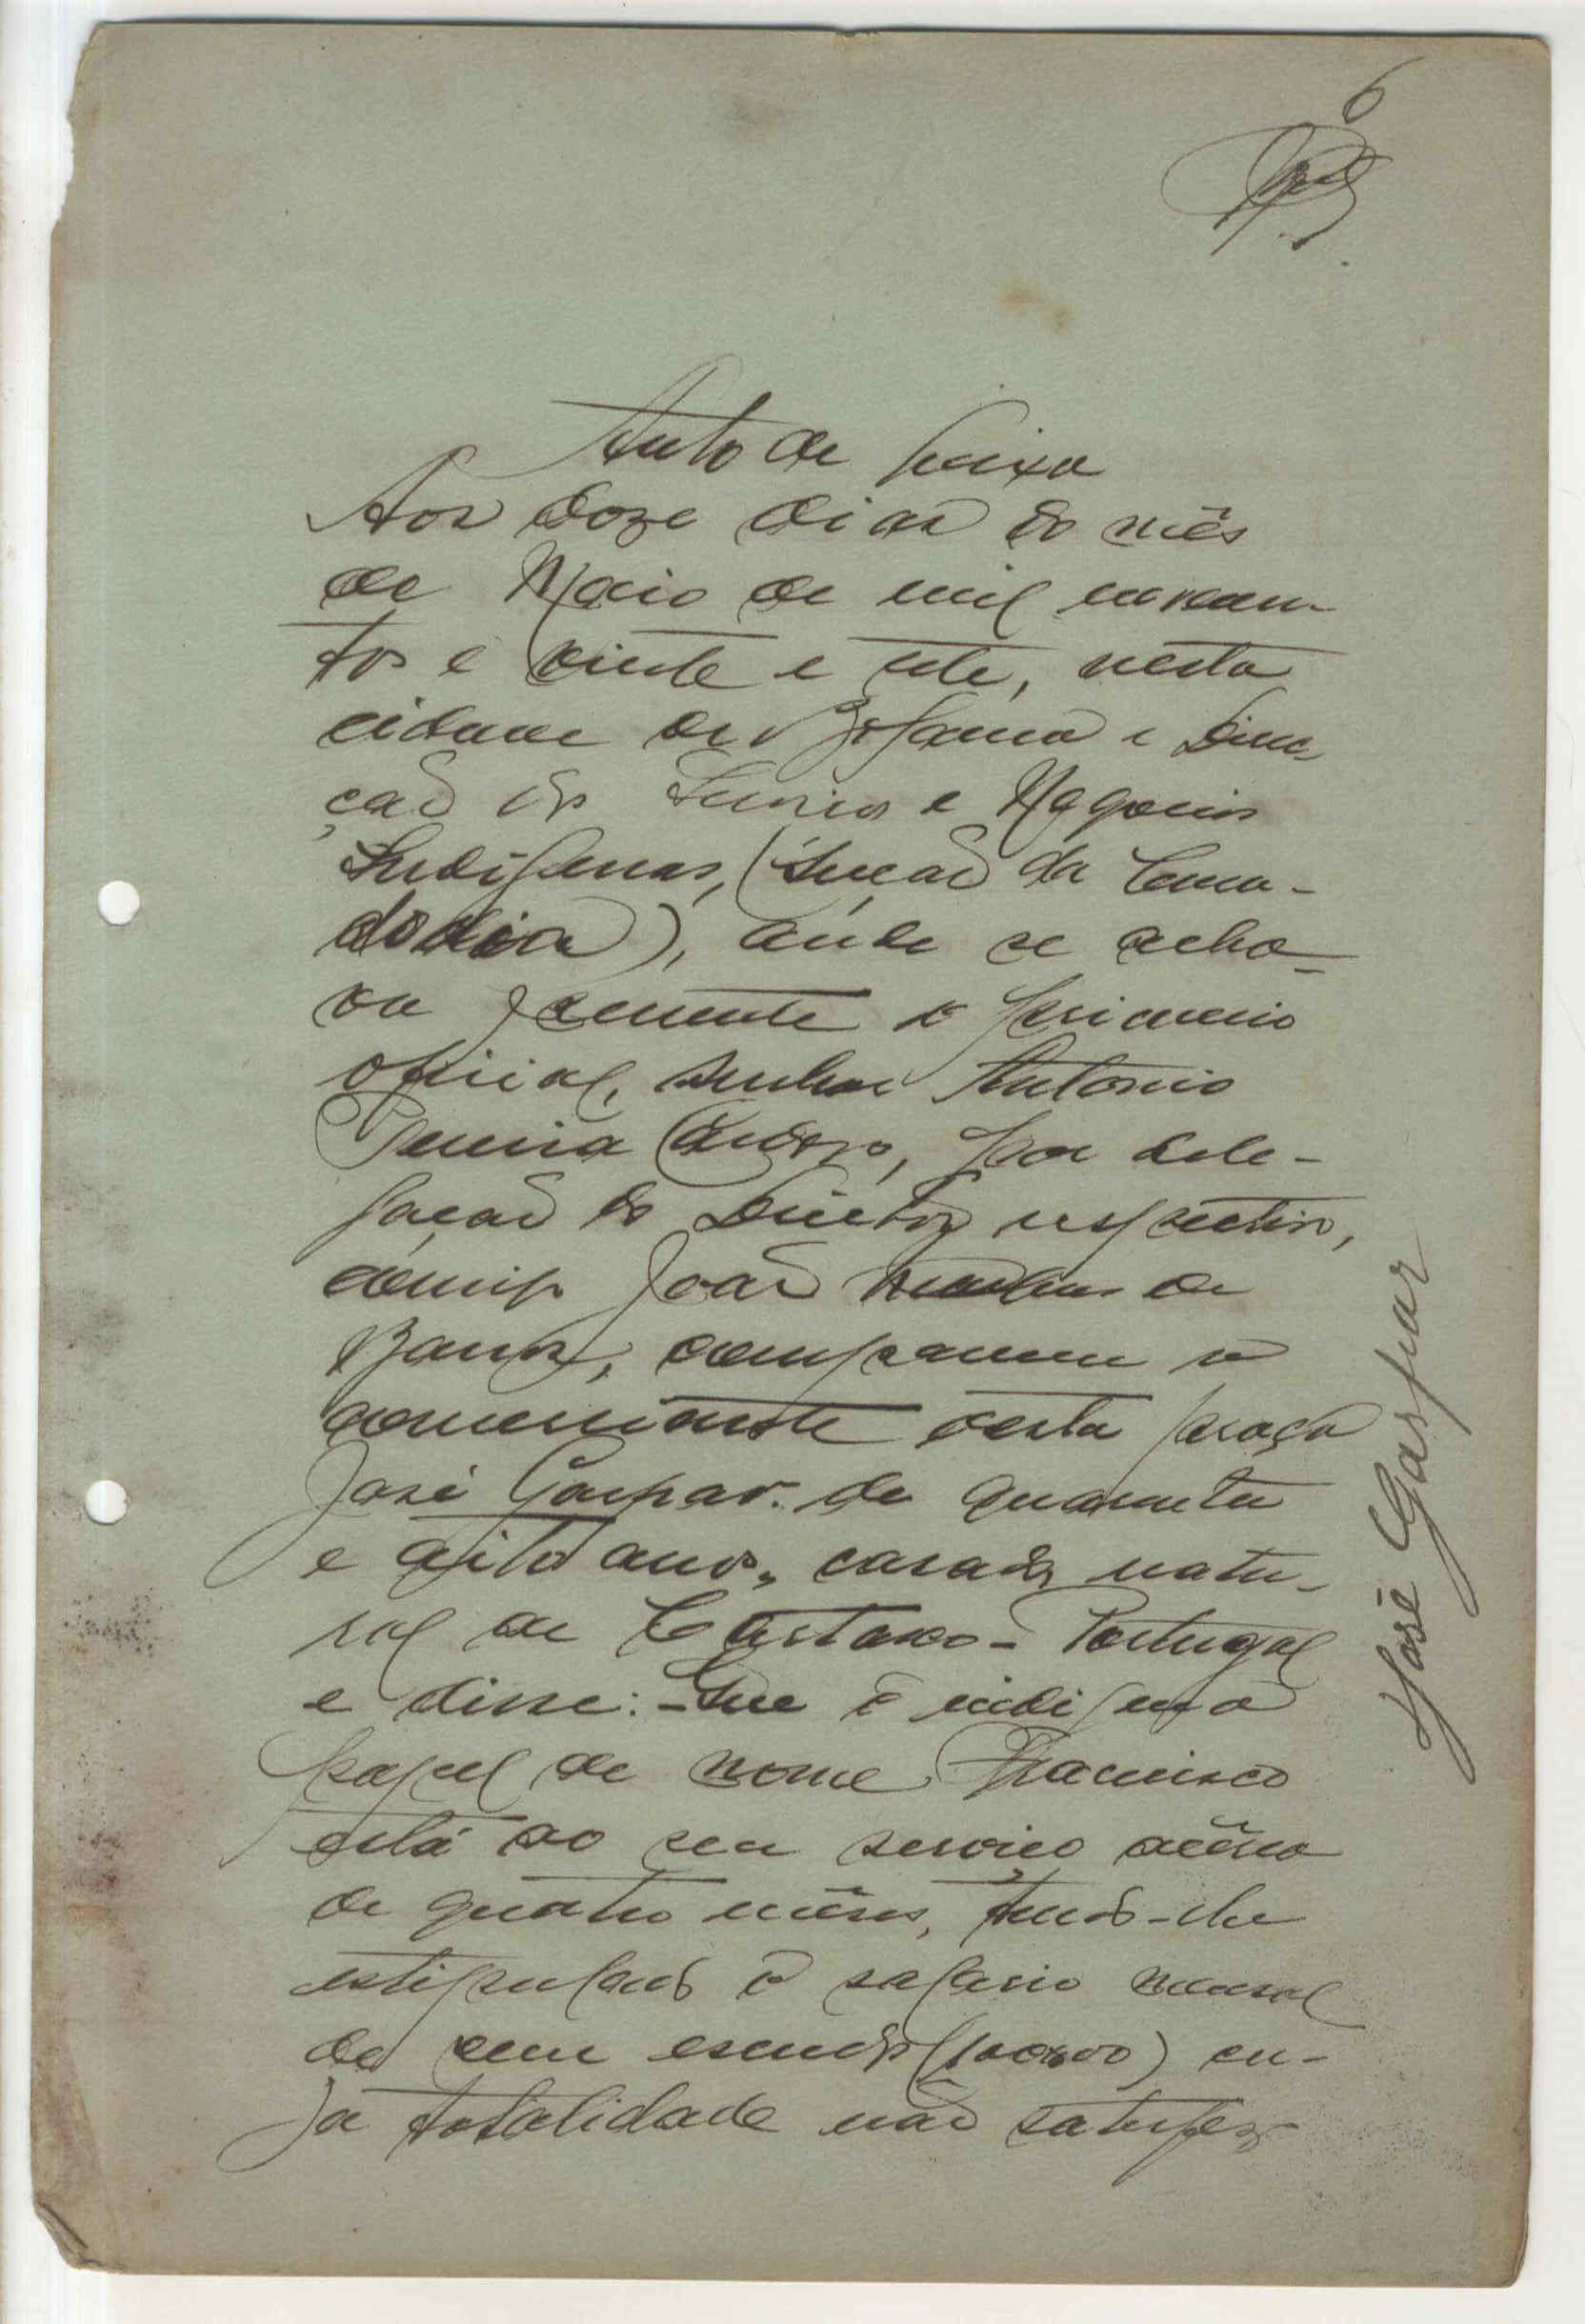 6
Auto de queixa
Aos doze dias do mês
de Maio de mil novecen-
tos e vinte e sete, nesta
cidade de Bolama e Direc-
ção dos Serviços e Negocios
Indigenas, (Secção da Cura-
doria), aúde se acha-
va presente o primeiro
oficial, senhor Antonio
Pereira Cardoso, por dele-
gação do Director respectivo,
comigo João de
Barros, compareceu o
comerciante desta praça
José Gaspar. de quarenta
e oito anos, casado, natu-
ral de Cartaxo - Portugal
e disse: - Que o indigena
papel de nome Francisco
está ao seu serviço acêrca
de quatro mêses, tendo-lhe
estipulado o salario mensal
de cem escudos (100$00) cu-
ja totalidade não satisfez
José Gaspar